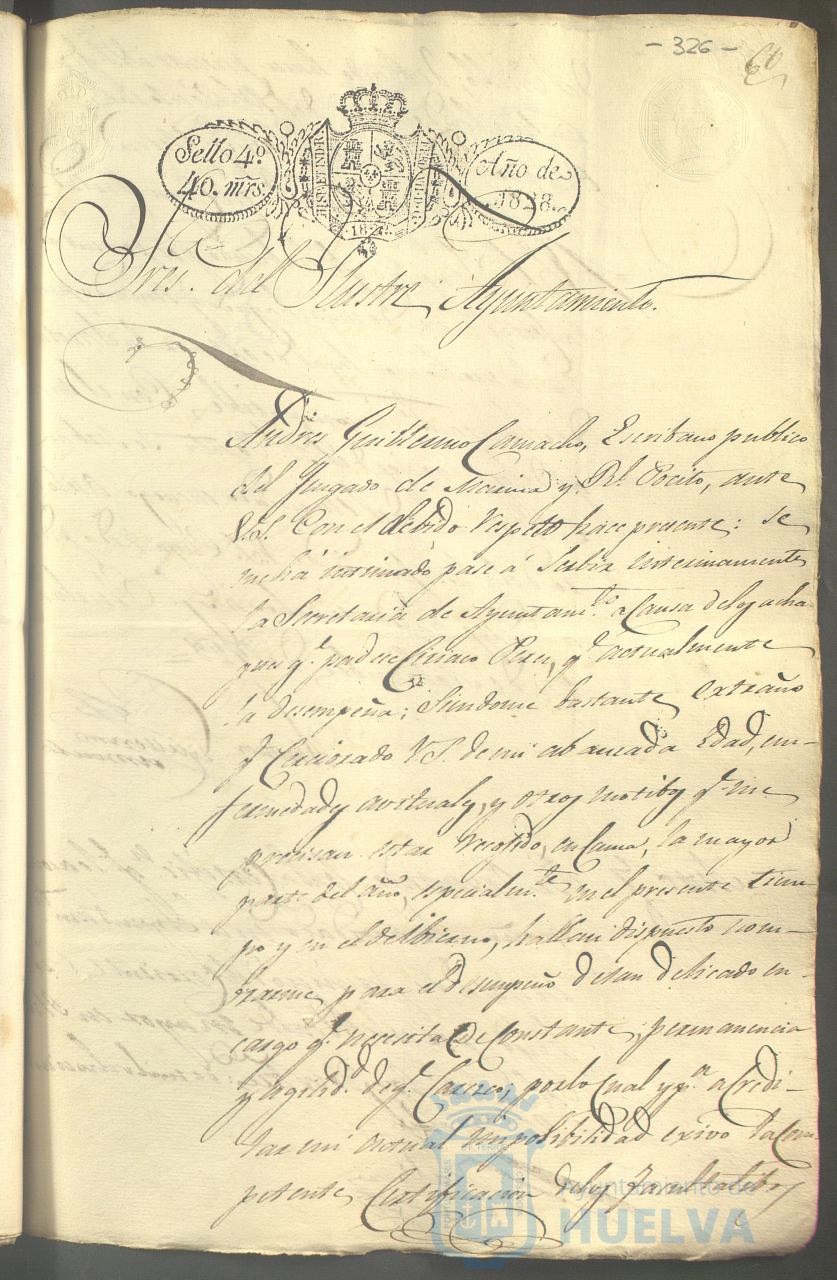 - 326 -
Sello 4º
40. mrs.
HISPAN ET INDIAR
Año de
1828.
Sres. del Ilustre Ayuntamiento.
Andres Guillermo Camacho, Escribano publico
del Juzgado de Marina y Rl. Pocito, ante
V.S. Con el debido respeto hace presente: se
me ha intimado, pase á Serbir interinamente
la Secretaria de Ayuntamto. a Causa de los acha-
ques q. padece Ciriaco Perez, q. actualmente
la desempeña; Siendome bastante extraño
q. Cerciorado V.S. de mi abanzada Edad, en-
fermedades avituales, y otros motibos q. me
precisan estar recojido, en Cama, la mayor
parte del año, especialmte. en el presente tiem-
po y en el del ibierno, hallan dispuesto nom-
brarme para el desempeño de tan delicado en-
cargo q. necesita de Constante permanencia
y agilidd. de q. Carezco; por lo Cual y pa. acredi-
tar mi actual imposibilidad exivo la Com-
petente Certificacion de los Facultatibos
Ayuntamiento de
HUELVA